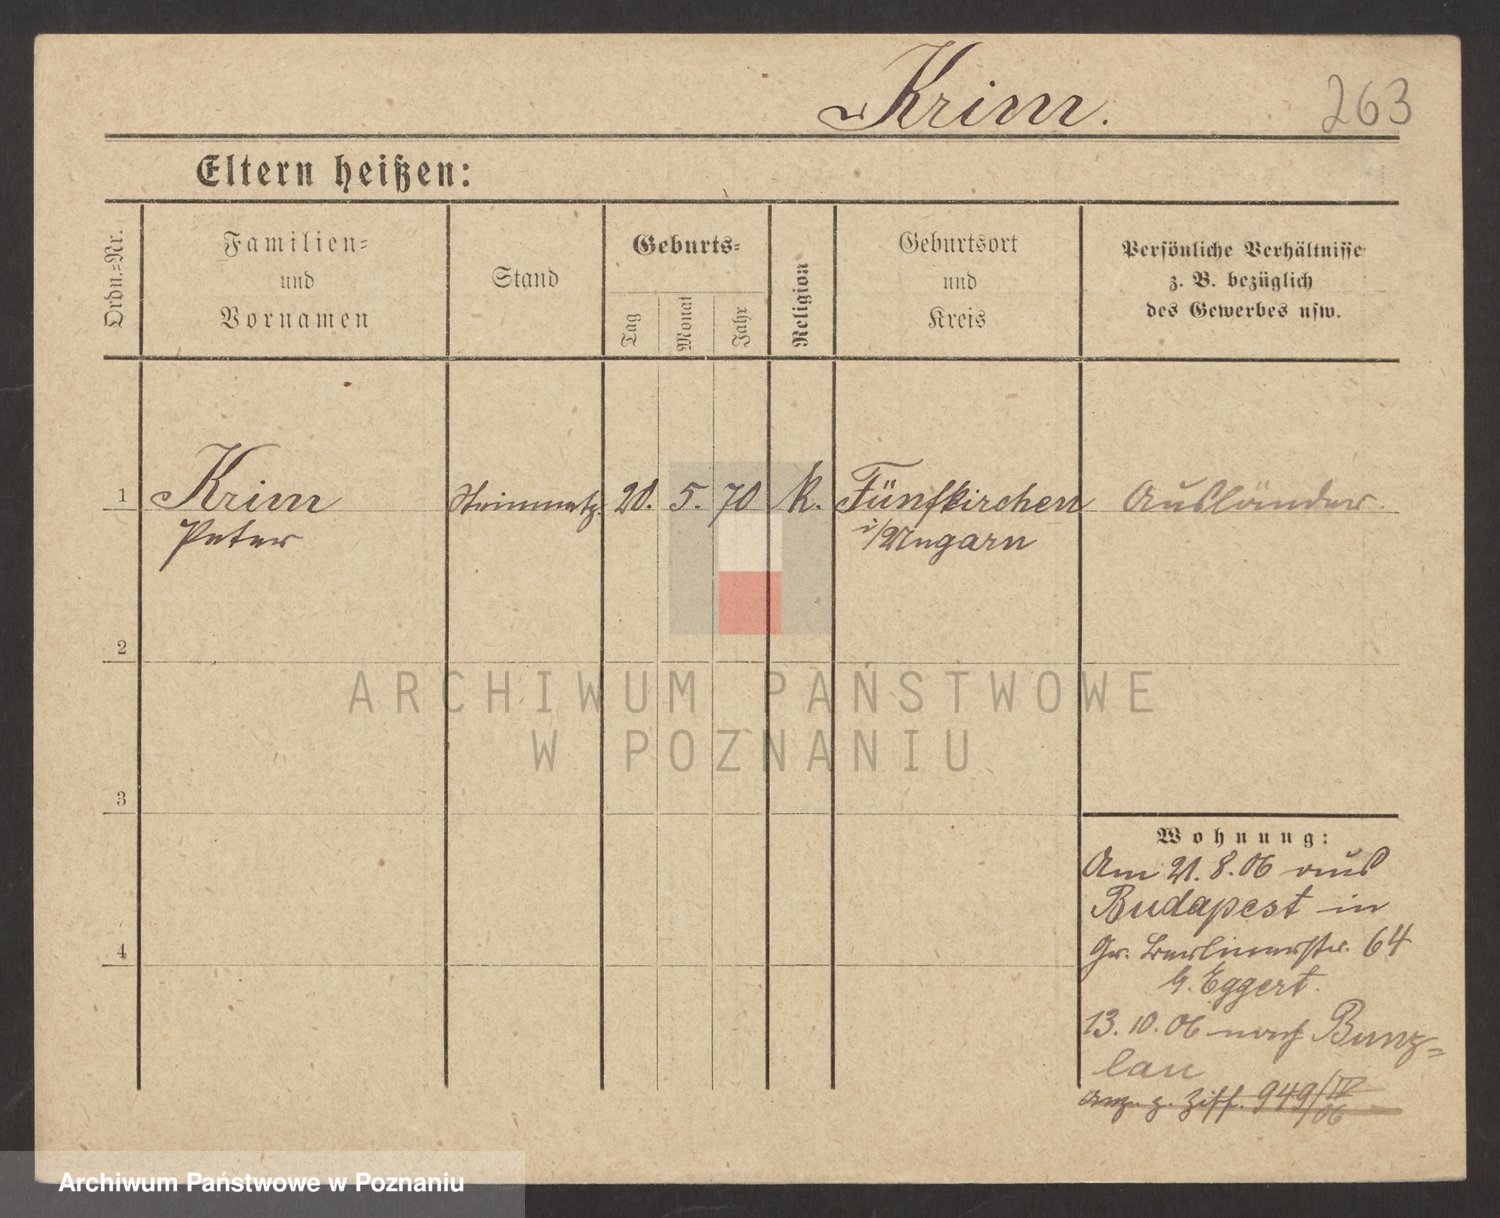 Krim.
263
Eltern heißen:
Ordn.=Nr.
Familien=
und
Vornamen
Stand
Geburts=
Tag
Monat
Jahr
Religion
Geburtsort
und
Kreis
Persönliche Verhältnisse
z. B. bezüglich
des Gewerbes usw.
1 Krim Steinmetz. 20. 5. 70 k. Fünfkirchen Ausländer.
Peter i/Ungarn
2
3
4
Wohnung:
Am 21. 8. 06 aus
Budapest in
Gr. Berlinerstr. 64
b. Eggert.
13. 10. 06 nach Bunz=
lau
Anz. z. Ziff. 949/IV
06
ARCHIWUM PAŃSTWOWE
W POZNANIU
Archiwum Państwowe w Poznaniu